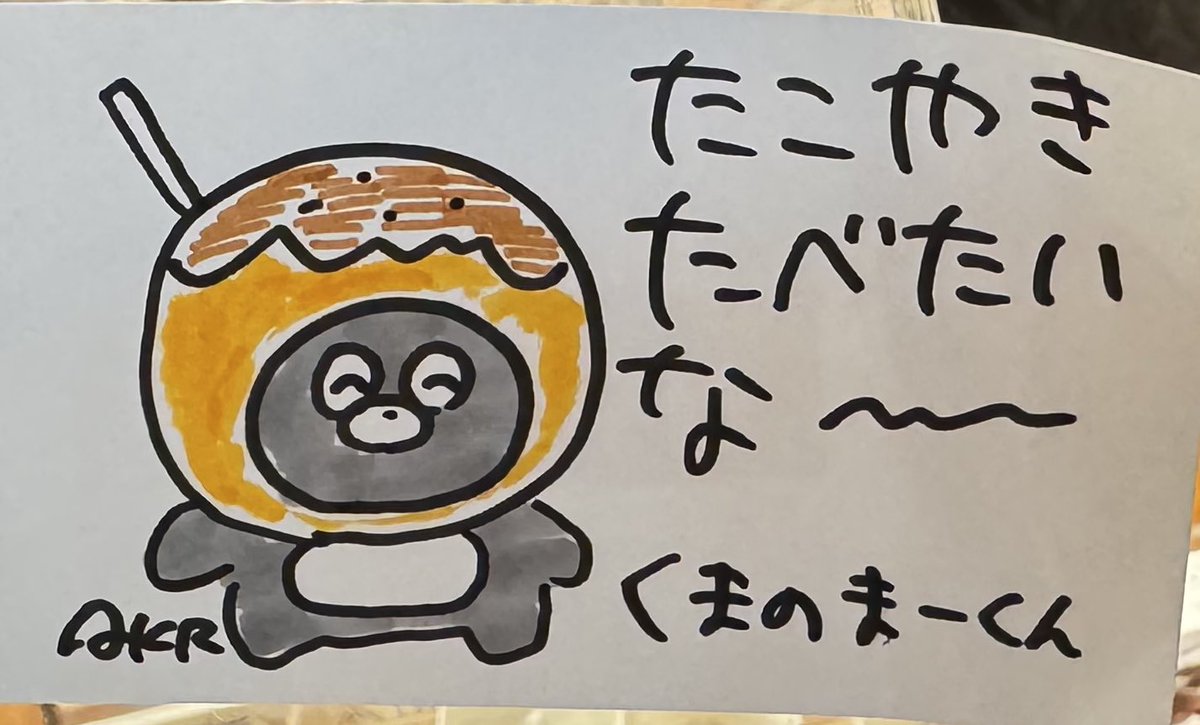 たこやき
たべたい
な〜
くまのまーくん
AKR